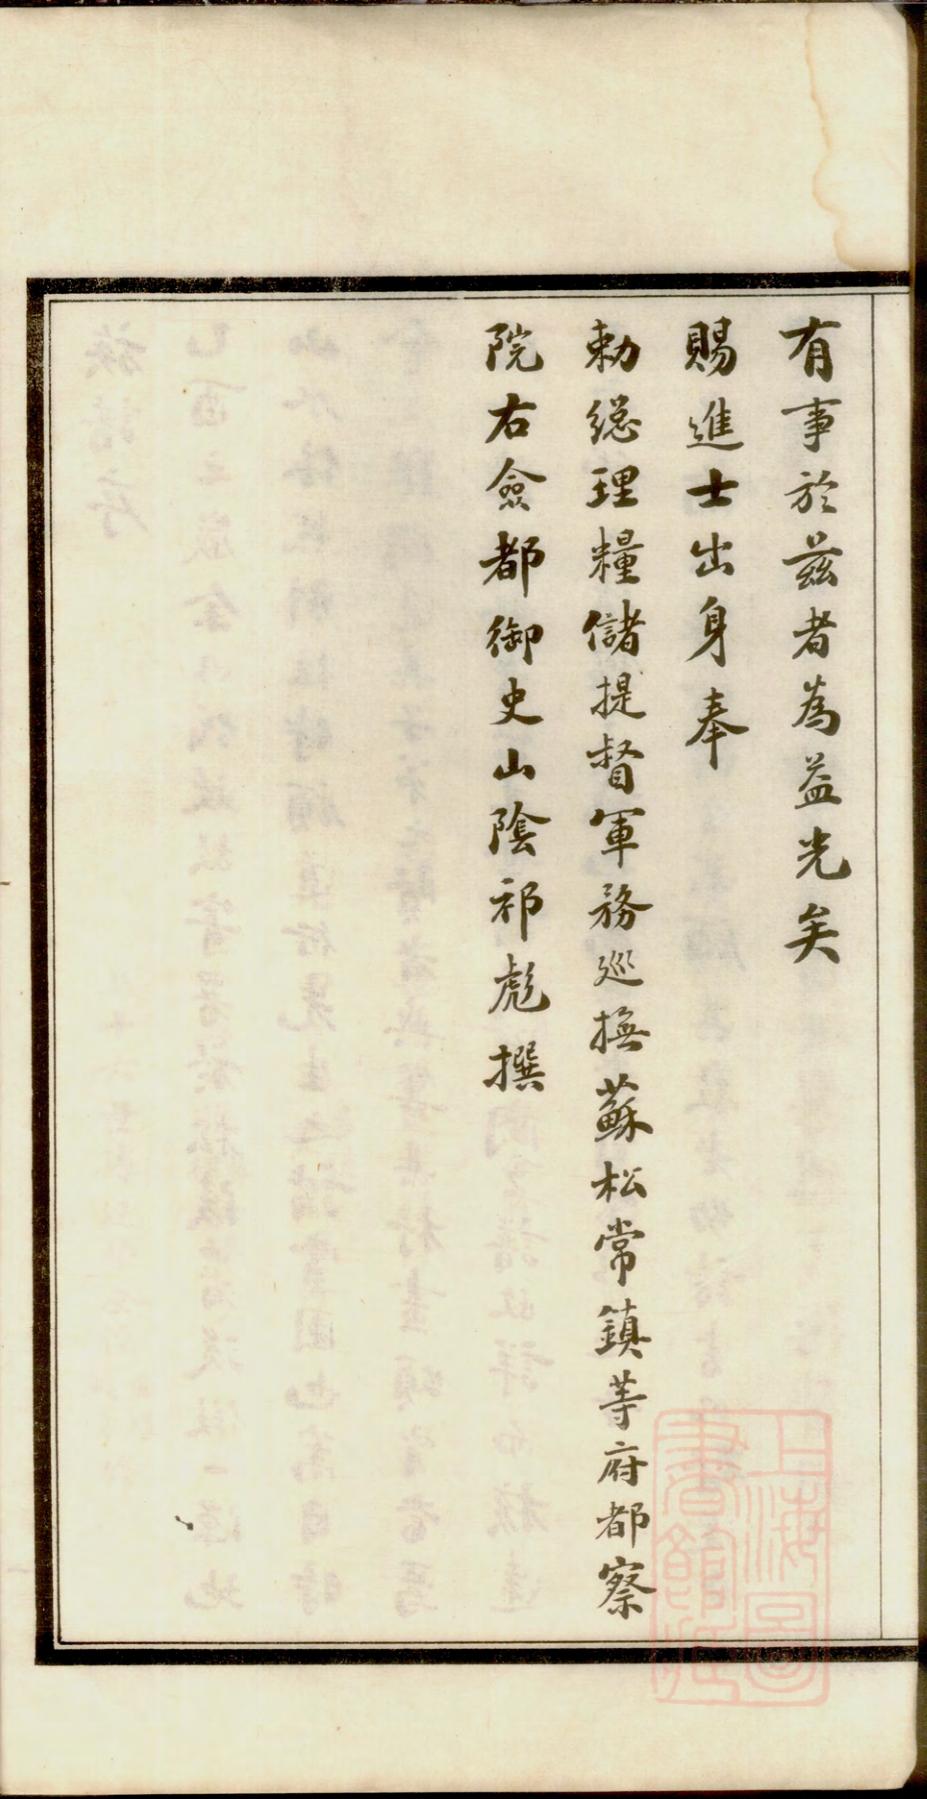 有事於茲者為益光矣
賜進士出身奉
勅總理糧儲提督軍務巡撫蘇松常鎮等府都察
院右僉都御史山陰祁彪撰
上海圖
書館藏